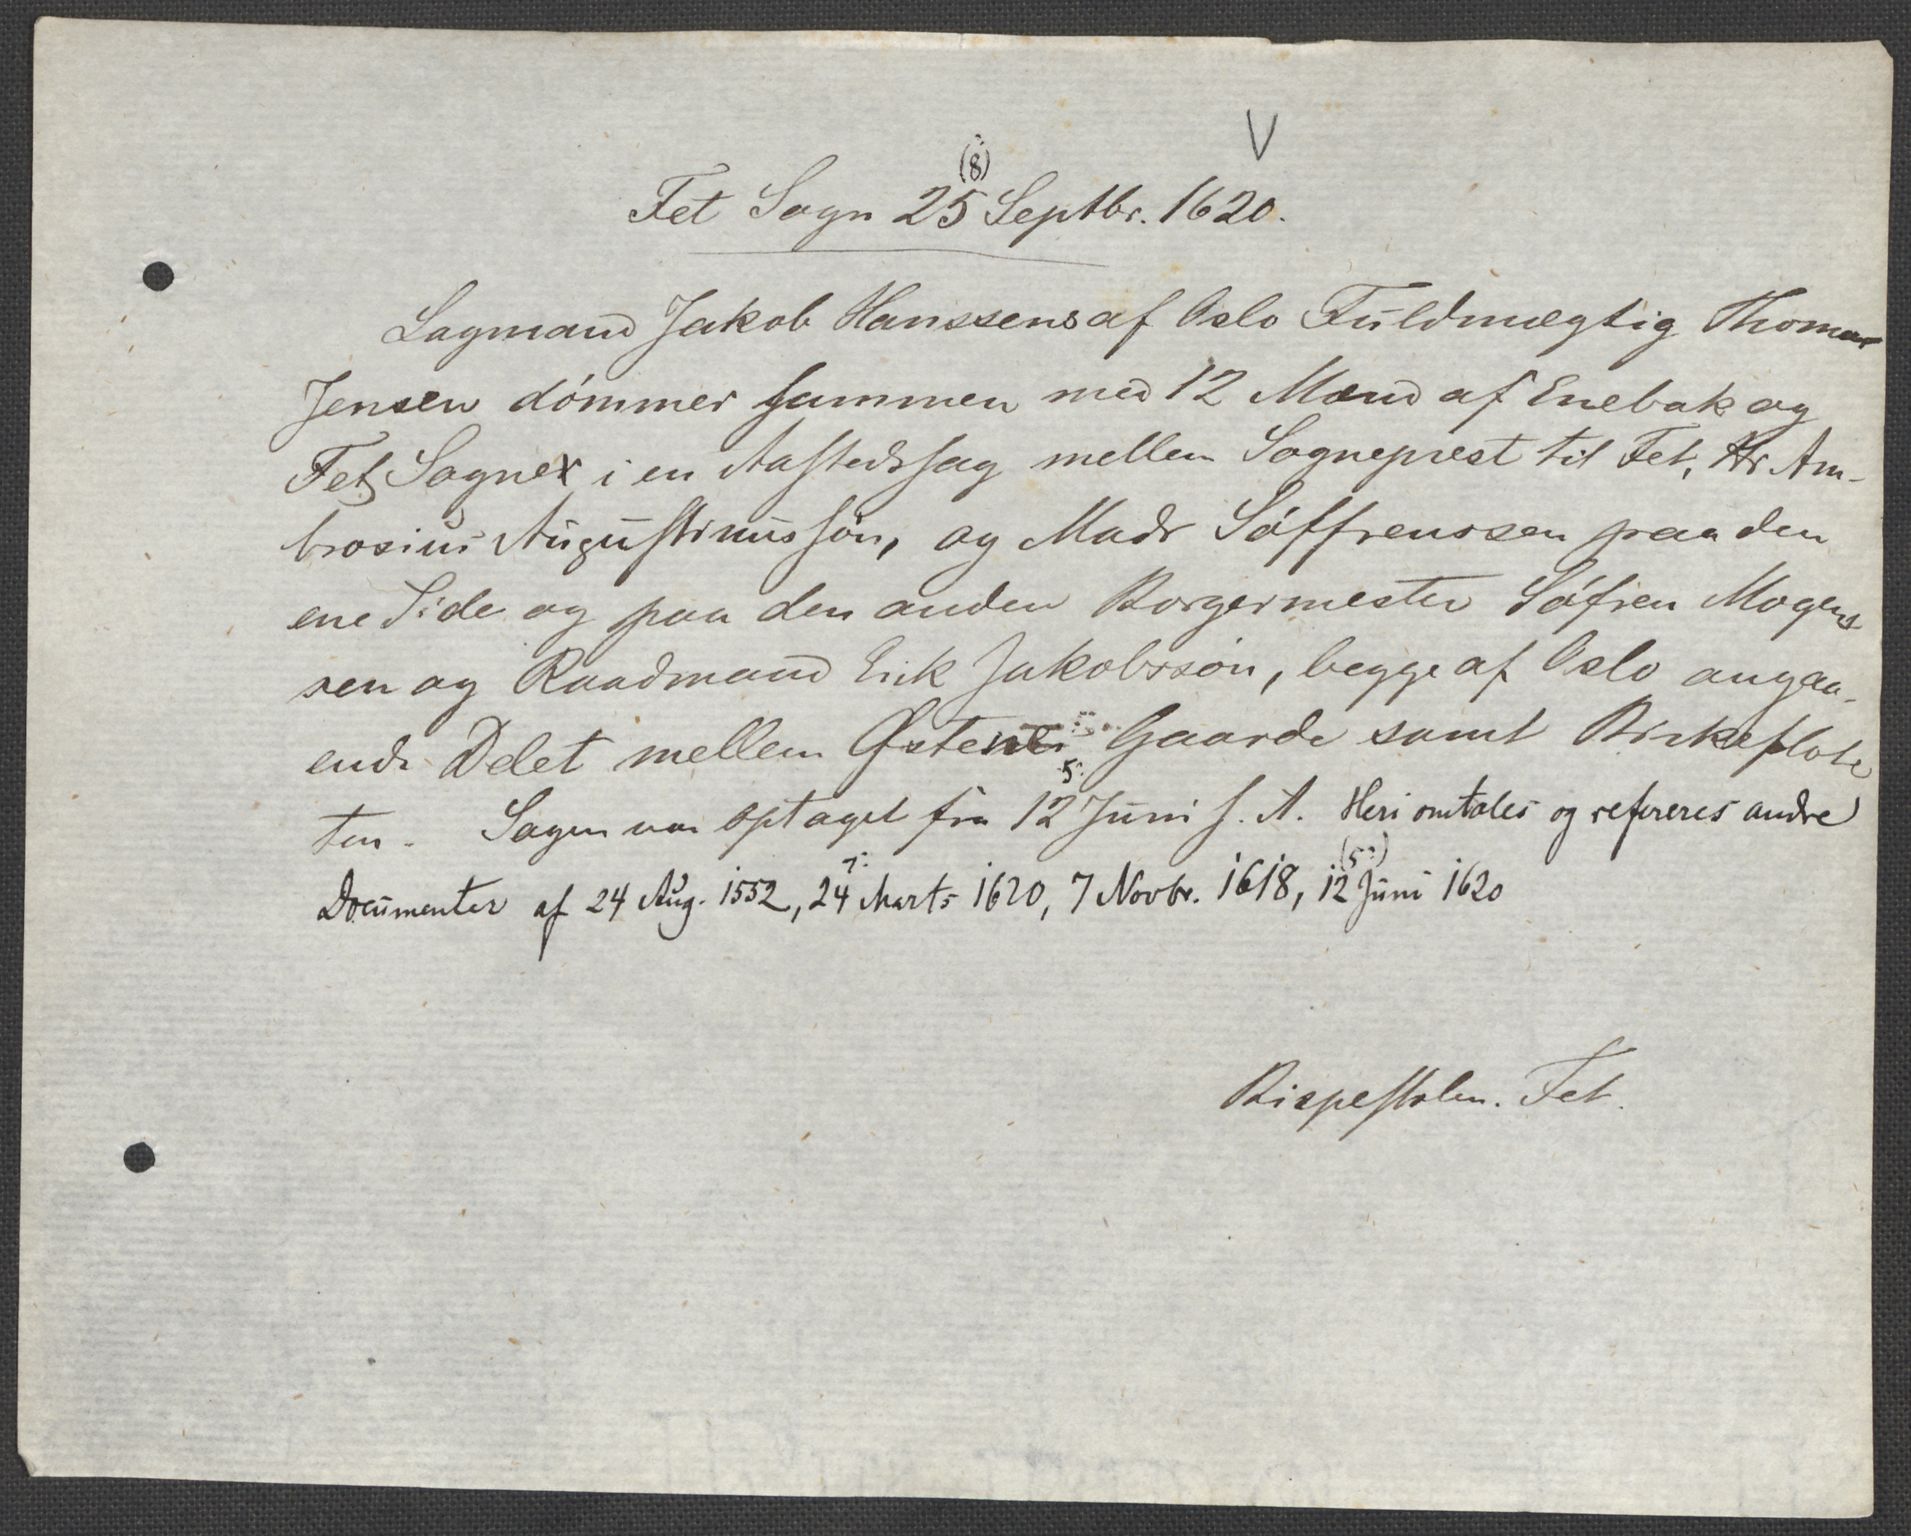 V
(8)
Fet Sogn 25 Septbr. 1620.
Lagmand Jakob Hanssens af Oslo Fuldmægtig Thomas
Jensen dömmer sammen med 12 Mænd af Enebak og
Fets Sogner i en Aastedssag mellem Sogneprest til Fet, Hr Am-
brosius Augustinussön, og Mads Söffrenssen paa den
ene Side og paa den anden Borgermester Söfren Mogens
sen og Raadmand Erik Jakobssön, begge af Oslo angaa-
ende Delet mellem Gaarde samt Birkeflote
ten. Sagen var optaget fra 12 Juni s. A. Heri omtales og refereres andre
Documenter af 24 Aug. 1552, 24 Marts 1620, 7 Novbr. 1618, 12 Juni 1620
Bispestolen. Fet.